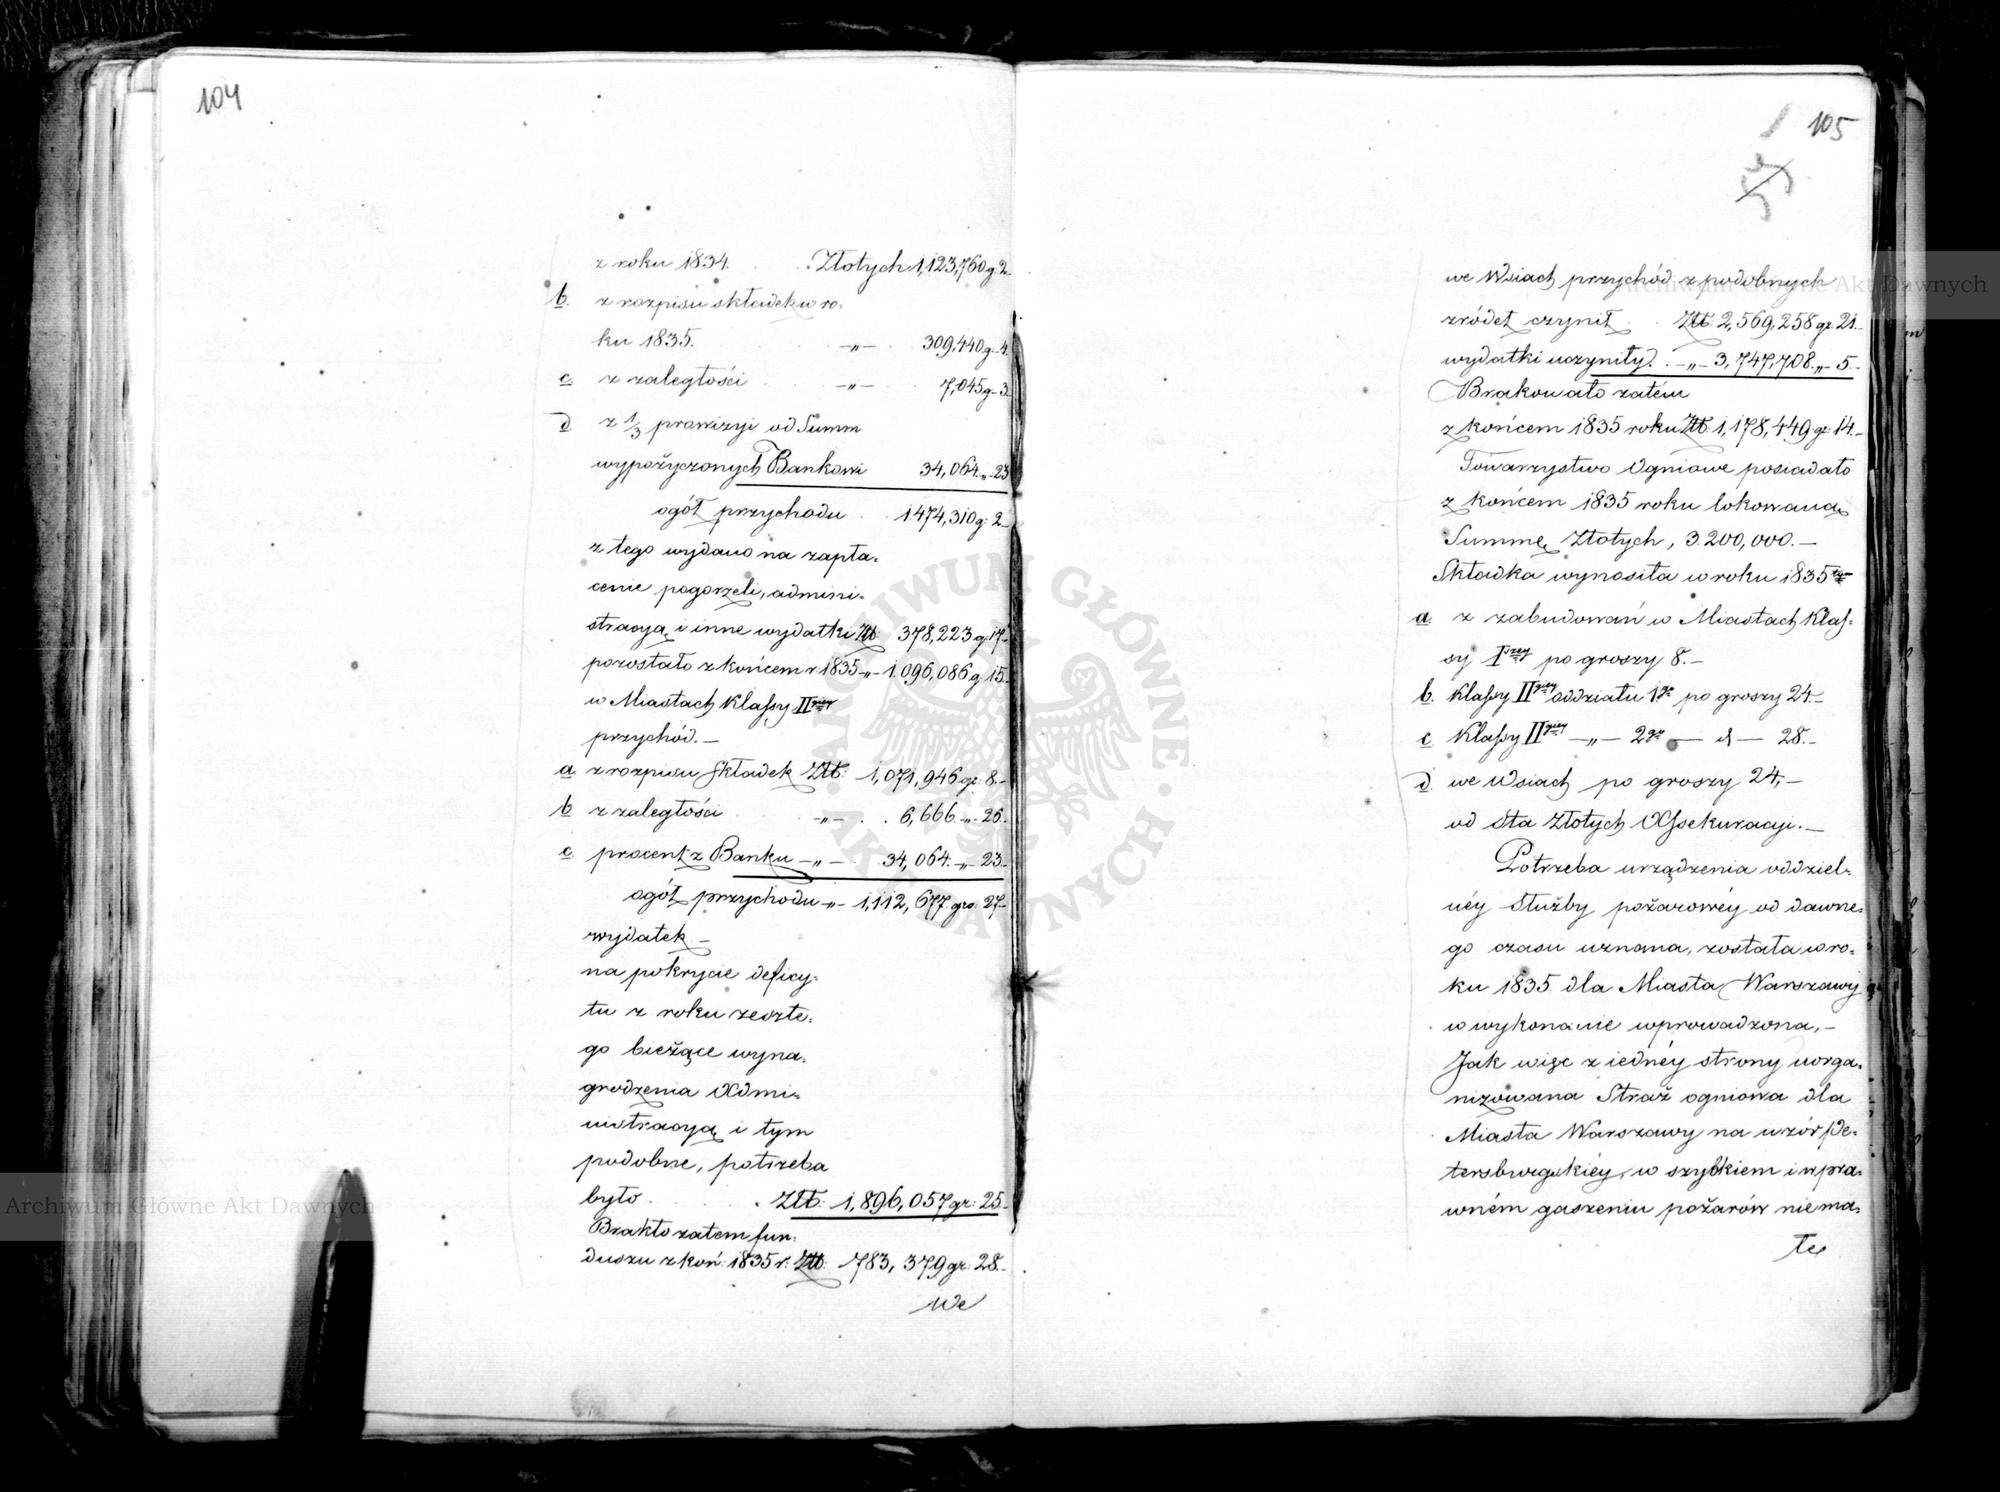 104
z roku 1834. . . Złotych 1,123,760 g: 2.
b. z rozpisu składek w ro-
ku 1835. . . . —„— . . 309,440 g– 4.
c. z zaległości . . —„— . . 7,045 g– 3
d z 1/3 prowizyi od Summ
wypożyczonych Bankowi 34,064.„– 23
ogół przychodu . . 1.474,310 g: 2.
z tego wydano na zapła-
cenie pogorzeli, admini-
stracyą i inne wydatki Złt: 378,223 g: 17.
pozostało z końcem r 1835 –„– 1.096,086 g: 15.
w Miastach Klassy II giey
przychód. —
a z rozpisu składek Złt: 1,071,946 gr: 8.–
b z zaległości . . —„— . . 6,666.„– 26.
c procent z Banku —„— . . 34,064.„– 23.
ogół przychodu –„– 1,112,677. gro: 27–
wydatek —
na pokrycie deficy-
tu z roku zeszłe-
go bieżące wyna-
grodzenia Admi-
nistracyą i tym
podobne, potrzeba
było . . . . Złt: 1,896,057 gr: 25.–
Brakło zatem fun-
duszu z koń: 1835 r: Złt: 783,379 gr: 28.–
We
105
we Wsiach przychód z podobnych
źródeł czynił . . Złt: 2,569,258 gr: 21.–
wydatki uczyniły . . –„– 3,747,708.„– 5.–
Brakowało zatém
z końcem 1835 roku Złt: 1,178,449 gr: 14.–
Towarzystwo Ogniowe posiadało
z końcem 1835 roku lokowaną
Summę Złotych, 3.200,000.—
Składka wynosiła w roku 1835 tym
a. z zabudowań w Miastach Klas-
sy I szey po groszy 8.–
b. Klassy II giey oddziału 1go po groszy 24.–
c Klassy II giey –„– 2go — d — 28.–
d. we Wsiach po groszy 24,–
od sta Złotych Assekuracyi.—
Potrzeba urządzenia oddziel-
néy Służby pożarowéy od dawne-
go czasu uznana, została w ro-
ku 1835 dla Miasta Warszawy
w wykonanie wprowadzona,–
Jak więc z iednéy strony uorga-
nizowana Straż ogniowa dla
Miasta Warszawy na wzór Pe-
tersburgskiéy, w szybkiem i wpra-
wném gaszeniu pożarów niema-
łe
Archiwum Główne Akt Dawnych
Archiwum Główne Akt Dawnych
ARCHIWUM GŁÓWNE AKT DAWNYCH